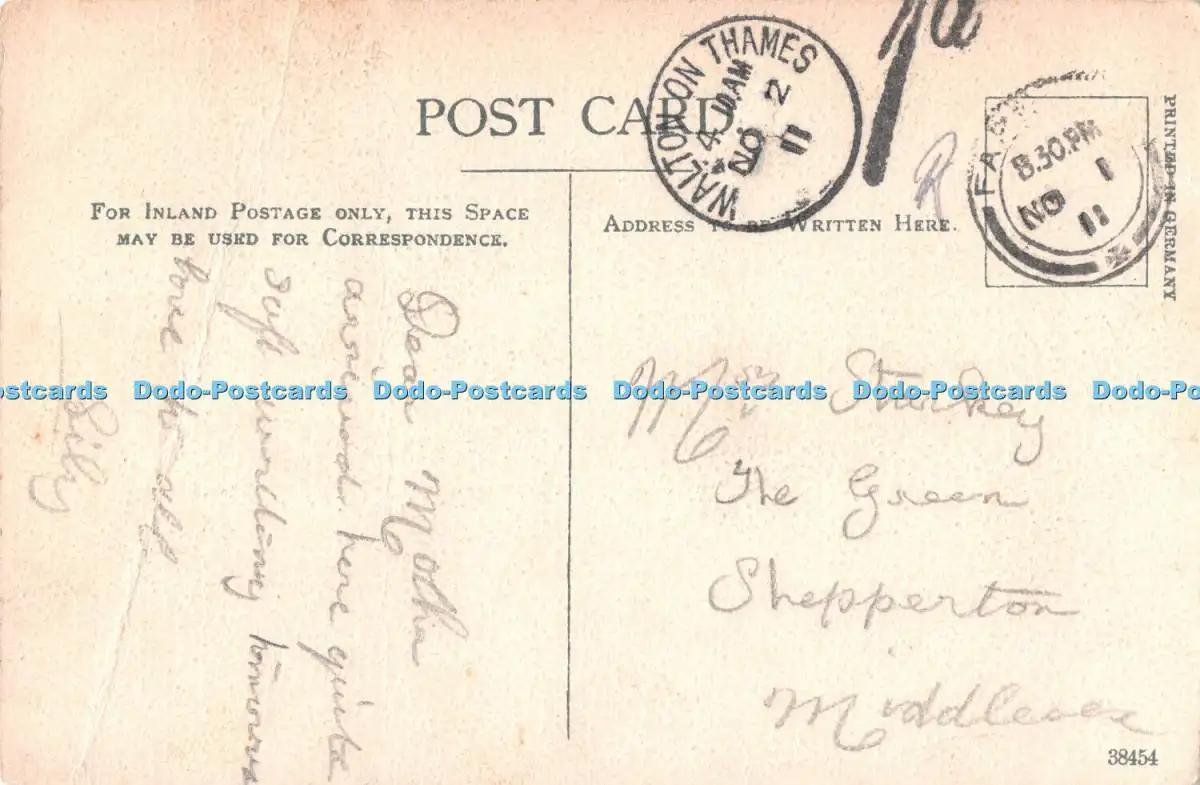 POST CARD
FOR INLAND POSTAGE ONLY, THIS SPACE
MAY BE USED FOR CORRESPONDENCE.
ADDRESS TO BE WRITTEN HERE.
WALTON ON THAMES
4 10.AM
NO 2
11
8.30.PM
NO 1
11
PRINTED IN GERMANY
Dear Mother
here quite
safe
love to all
Mrs Starkey
The Green
Shepperton
Middlesex
38454
Dodo-Postcards Dodo-Postcards Dodo-Postcards Dodo-Postcards